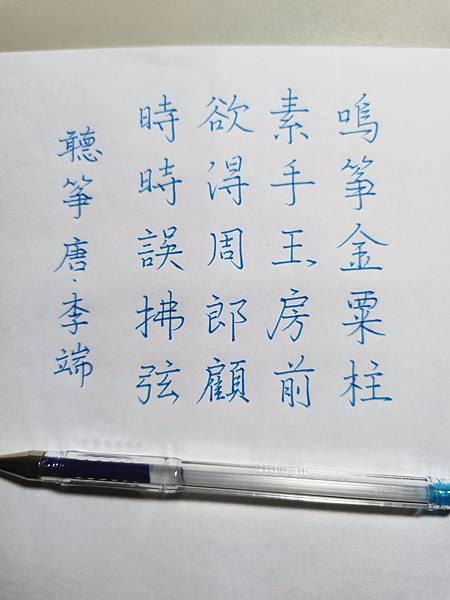 鳴箏金粟柱
素手玉房前
欲得周郎顧
時時誤拂弦
聽箏 唐·李端